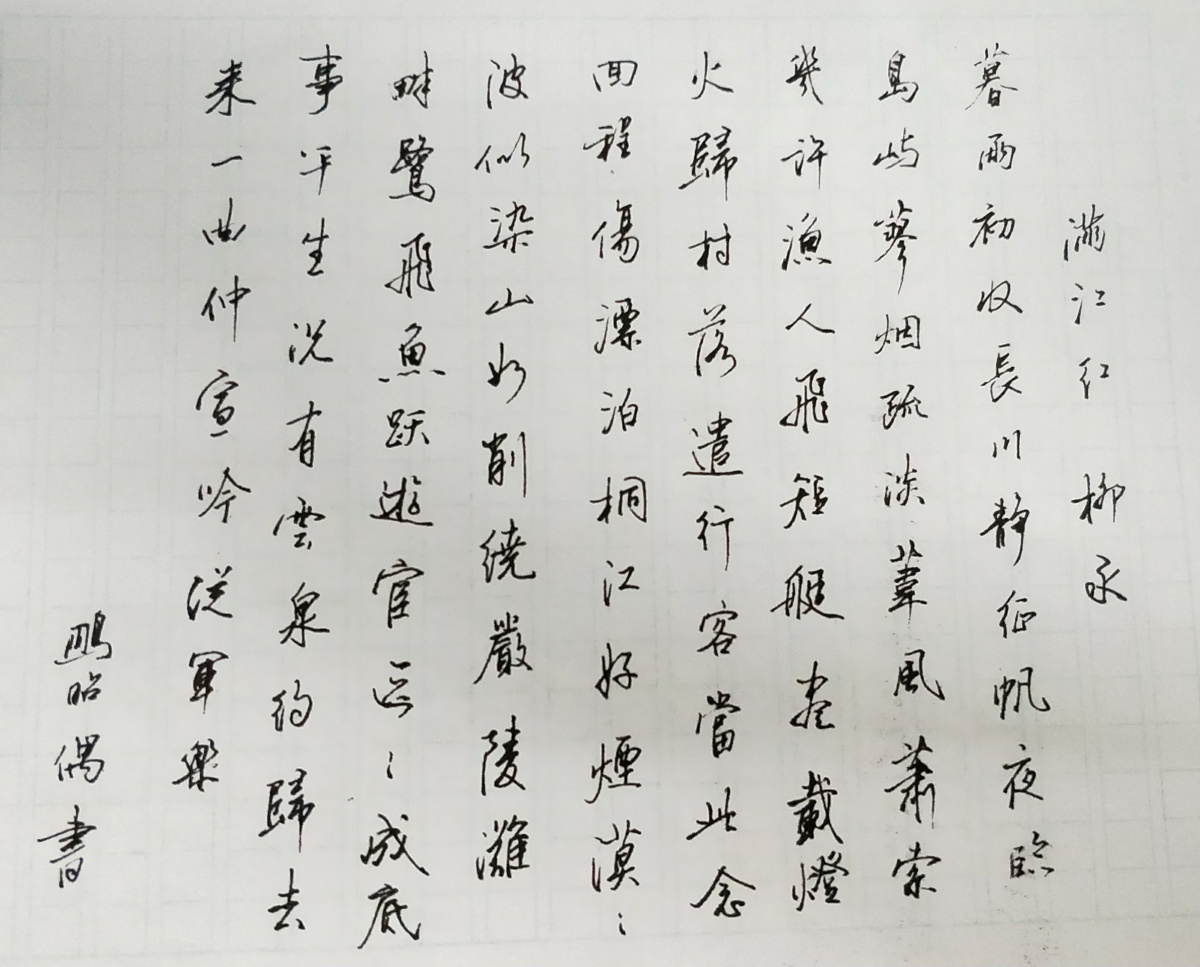 满江红 柳永
暮雨初收長川静征帆夜臨
島屿蓼烟疏淡葦風蕭索
幾许漁人飛短艇盡載燈
火歸村落遣行客當此念
回程傷漂泊桐江好煙漠〻
波似染山如削繞嚴陵灘
畔鷺飛魚跃遊宦区〻成底
事平生况有雲泉约歸去
来一曲仲宣吟從軍樂
鵬昭偶書